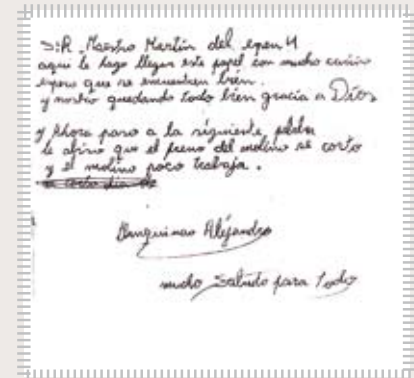 S:R. Maestro Martin del epen 4
aqui le hago llegar este papel con mucho cariño
espero que se encuentren bien.
y nosotro quedando todo bien gracia a Dios
y Ahora paso a la siguiente, palabra
le abiso que el freno del molino se corto
y el molino poco trabaja.
Alejandro
mucho Saludo para Todo